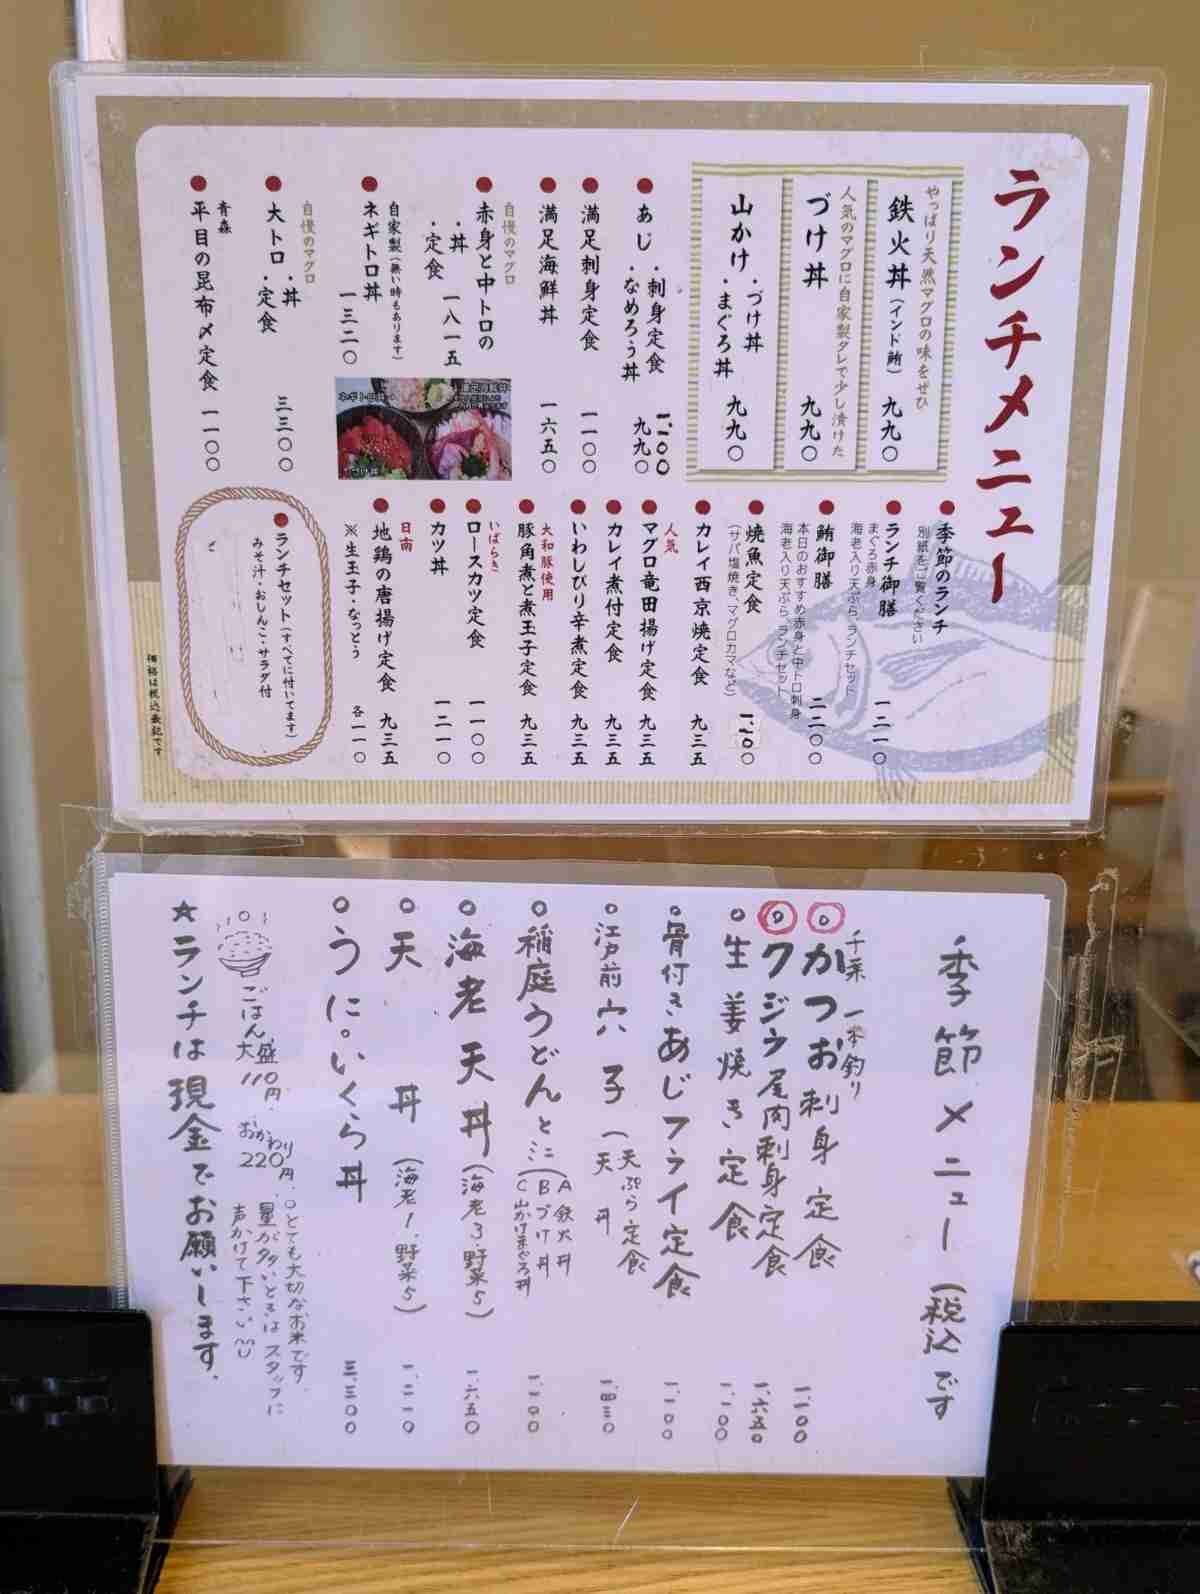 ランチメニュー
やっぱり天然マグロの味をぜひ
鉄火丼（インド鮪） 九九〇
人気のマグロに自家製タレで少し漬けた
づけ丼 九九〇
山かけ ・づけ丼
・まぐろ丼 九九〇
●あじ ・刺身定食 1.100
・なめろう丼 九九〇
●満足刺身定食 一一〇〇
●満足海鮮丼 一六五〇
自慢のマグロ
●赤身と中トロの
・丼
・定食 一八一五
自家製（無い時もあります）
●ネギトロ丼 一三二〇
自慢のマグロ
●大トロ ・丼
・定食 三三〇〇
青森
●平目の昆布〆定食 一一〇〇
ネギトロ丼
●季節のランチ
別紙をご覧ください
●ランチ御膳 一二一〇
まぐろ赤身
海老入り天ぷら、ランチセット
●鮪御膳 二二〇〇
本日のおすすめ赤身と中トロ刺身
海老入り天ぷら、ランチセット
●焼魚定食 1.100
（サバ塩焼き、マグロカマなど）
●カレイ西京焼定食 九三五
人気
●マグロ竜田揚げ定食 九三五
●カレイ煮付定食 九三五
●いわしぴり辛煮定食 九三五
大和豚使用
●豚角煮と煮玉子定食 九三五
いばらき
●ロースカツ定食 一一〇〇
●カツ丼 一二一〇
日南
●地鶏の唐揚げ定食 九三五
※生玉子・なっとう 各一一〇
●ランチセット（すべてに付いてます）
みそ汁・おしんこ・サラダ付
価格は税込表記です
季節メニュー（税込）です
千葉 一本釣り
◎かつお刺身定食 一.一〇〇
◎クジラ尾肉刺身定食 一.六五〇
○生姜焼き定食 一.一〇〇
○骨付きあじフライ定食 一.一〇〇
○江戸前穴子（天ぷら定食
天丼 一.四三〇
○稲庭うどんとミニ（A鉄火丼
Bづけ丼
C山かけまぐろ丼 一.一〇〇
○海老天丼（海老3.野菜5） 一.六五〇
○天丼（海老1.野菜5） 一.二一〇
○うに。いくら丼 三.三〇〇
ごはん大盛110円. おかわり220円.
○とても大切なお米です.
量が多いときはスタッフに
声かけて下さい
★ランチは現金でお願いします.